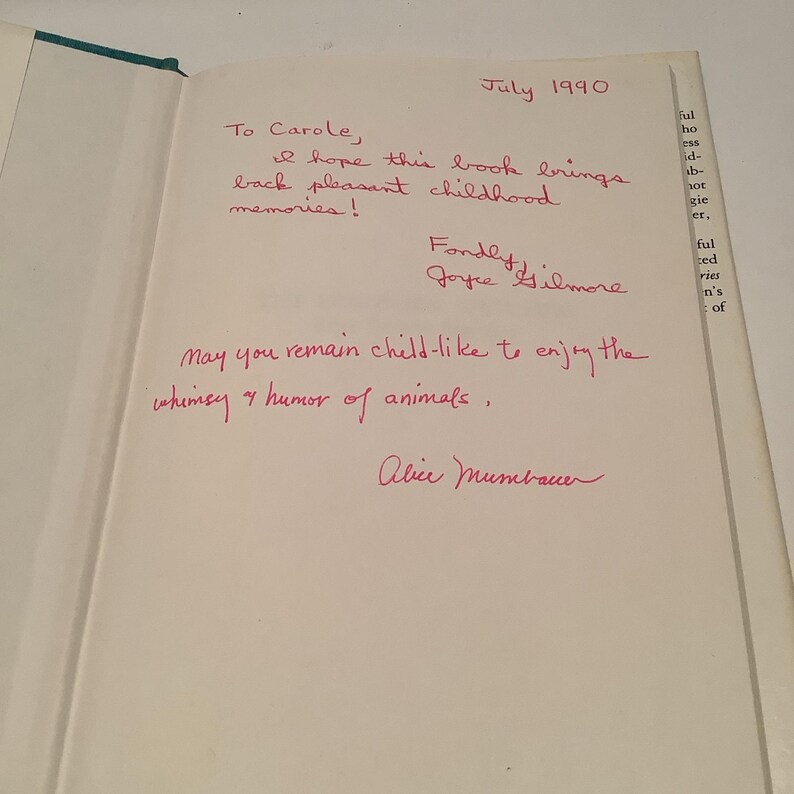 July 1990
To Carole,
I hope this book brings
back pleasant childhood
memories!
Fondly,
Joyce Gilmore
May you remain child-like to enjoy the
whimsy & humor of animals.
Alice Mumbauer
ful
ho
ess
id-
ab-
not
gie
er,
ful
ted
ries
n's
of